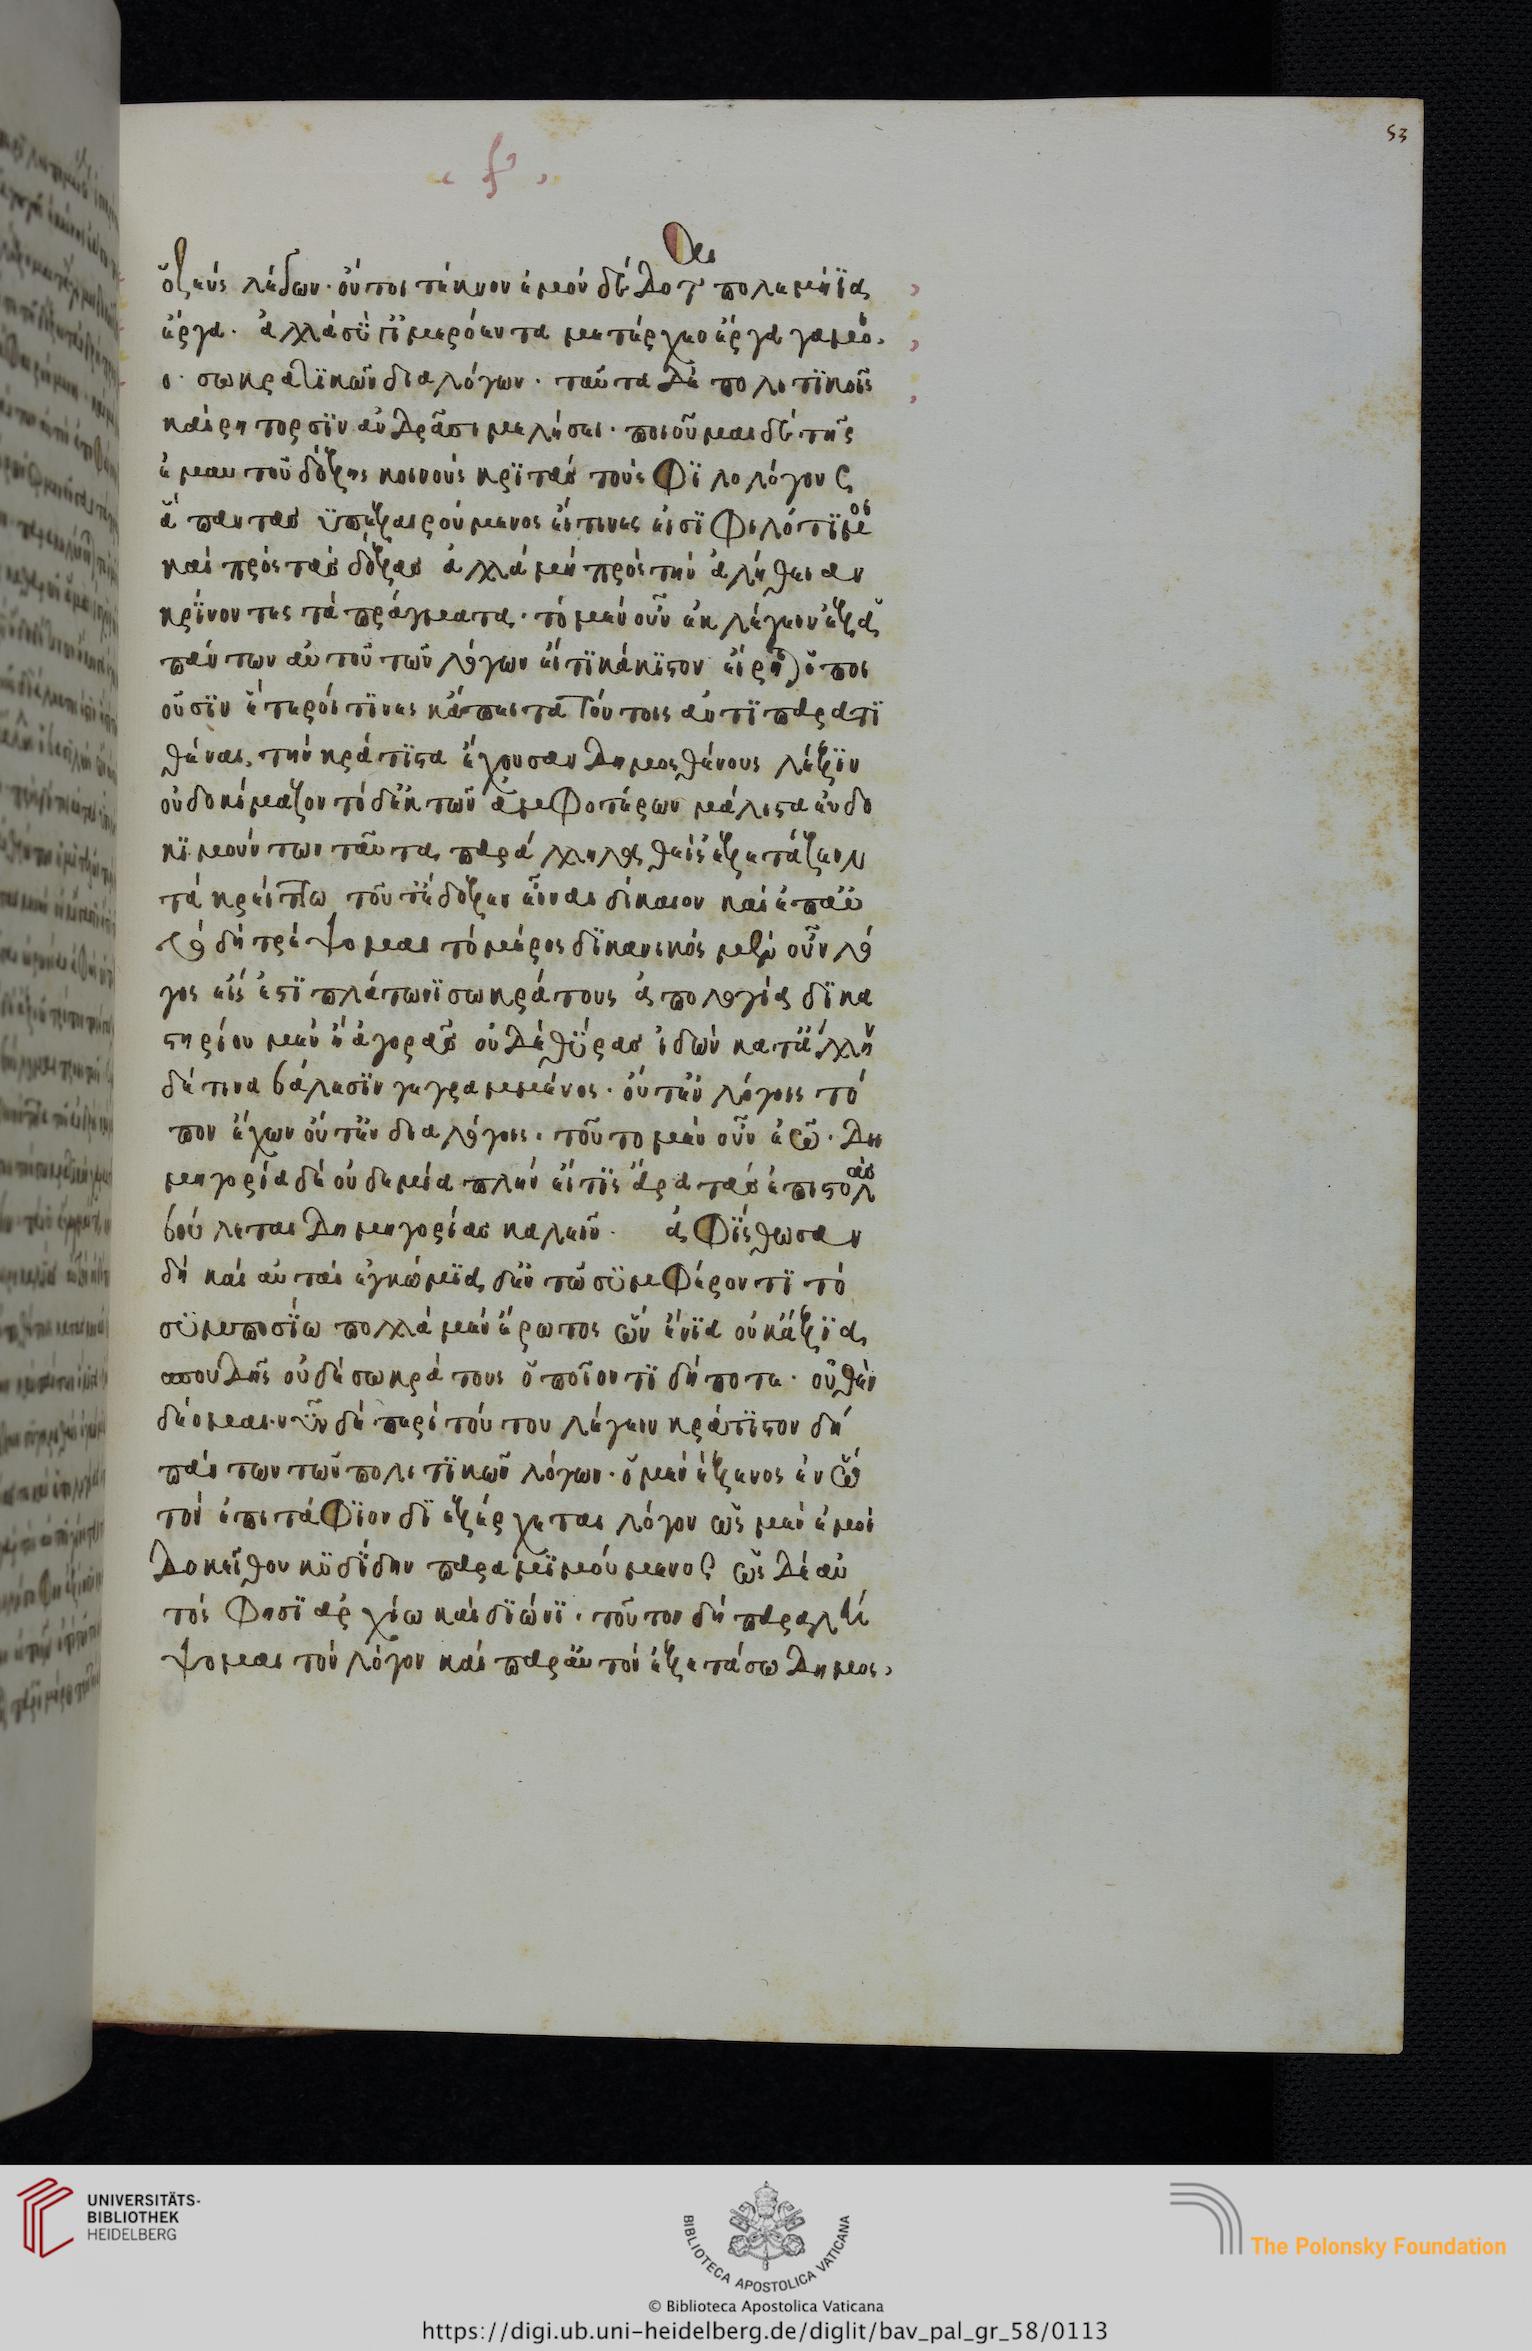 53
ὁ ζεὺς λαβών· οὔ τοι τέκνον ἐμὸν δέδοται πολεμήϊα
ἔργα· ἀλλὰ σύ γ' ἱμερόεντα μετέρχεο ἔργα γάμοι
ο· σωκρατϊκῶν διαλόγων· ταῦτα δὲ πολιτϊκοῖς
καὶ ῥήτορσϊν ἀνδράσι μελήσει· ποιοῦμαι δὲ τῆς
ἐμαυτοῦ δόξης κοινοὺς κρϊτὰς τοὺς φϊλολόγους
ἅπαντας ϋπεξαιρούμενος εἴ τινες εἰσϊ φιλότϊμοι
καὶ πρὸς τὰς δόξας ἀλλὰ μὴ πρὸς τὴν ἀλήθειαν
κρίνοντες τὰ πράγματα· τὸ μὲν οὖν ἐκλέγειν ἐξ ἁ
πάντων αὐτοῦ τῶν λόγων εἴ τϊ κάκϊστον εἴρηται ὃ ποι
οῦσϊν ἕτεροί τϊνες κἄπειτα τούτοις ἀντϊπαρατϊ
θέναι, τὴν κράτϊστα ἔχουσαν δημοσθένους λέξϊν
οὐ δοκίμαζον τὸ δ' ἐκ τῶν ἀμφοτέρων μάλιστα εὐδο
κϊμούντων ταῦτα παράλληλα θεὶς ἐξετάζειν
τὰ κρείττω τοῦτ' ἔδοξεν εἶναι δίκαιον καὶ ἐπ' αὐ
τὸ δὴ τρέψομαι τὸ μέρος δϊκανικὸς μὲν οὖν λό
γος εἷς ἐστϊ πλάτωνϊ σωκράτους ἀπολογία δϊκα
στηρίου μὲν ἢ ἀγορᾶς οὐδὲ θύρας ἰδὼν κατ' ἄλλην
δέ τινα βούλησϊν γεγραμμένος· οὔτ' ἐν λόγοις τό
πον ἔχων οὔτ' ἐν διαλόγοις· τοῦτο μὲν οὖν ἐῶ· δη
μηγορία δὲ οὐδεμία πλὴν εἴ τϊς ἄρα τὰς ἐπιστολὰς
βούλεται δημηγορίας καλεῖν· ἀφϊέσθωσαν
δὴ καὶ αὗται ἐγκώμϊα δ' ἐν τῶ συμφέροντϊ τὸ
συμποσίω πολλὰ μὲν ἔρωτος ὧν ἔνϊα οὐκ ἄξϊα
σπουδῆς οὐδὲ σωκράτους ὁποῖόν τϊ δήποτε· οὐθὲν
δέομαι νῦν δὲ περὶ τούτου λέγειν κράτϊστον δὴ
πάντων τῶν πολιτϊκῶν λόγων· ὁ μενέξενος ἐν ᾧ
τὸν ἐπιτάφϊον δϊεξέρχεται λόγον ὡς μὲν ἐμοὶ
δοκεῖ θουκυδίδην παραμϊμούμενος ὡς δὲ αὐ
τός φησϊ ἀρχίω καὶ δϊώνϊ· τοῦτον δὴ παραλή
ψομαι τὸν λόγον καὶ παρ' αὐτὸν ἐξετάσω δημοσ
UNIVERSITÄTS-
BIBLIOTHEK
HEIDELBERG
BIBLIOTECA APOSTOLICA VATICANA
The Polonsky Foundation
© Biblioteca Apostolica Vaticana
https://digi.ub.uni-heidelberg.de/diglit/bav_pal_gr_58/0113